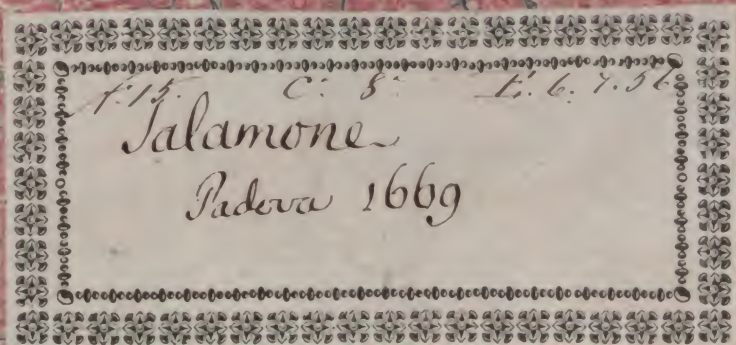 f. 15. C. 8. E. 6. 7. 56
Talamone
Padova 1669